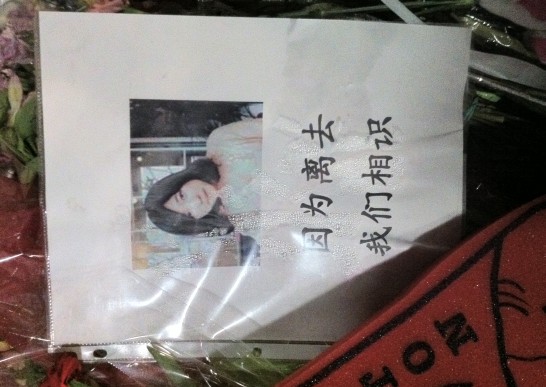 因为离去
我们相识
NOE